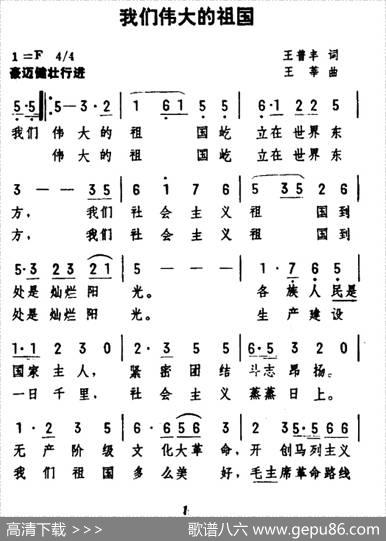 我们伟大的祖国
1=F 4/4
王普丰 词
豪迈健壮行进
王莘 曲
5·5 5—3·2 1 6 1 5 5 6·1 2 2 5
我们 伟大的 祖 国屹 立在世界东
伟大的 祖 国屹 立在世界东
3 — — 3 5 6 1 7 6 5 3 5 2 6
方, 我们 社会主义 祖 国到
方, 我们 社会主义 祖 国到
5·3 2 3 2 1 5 — — — 1·7 6 5
处是灿烂阳 光。 各族人民是
处是灿烂阳 光。 生产建设
1·1 2 3 0 2·3 5 5 6·5 3 2 0
国家主人, 紧密团结 斗志昂扬。
一日千里, 社会主义 蒸蒸日上。
1·2 3 5 6·6 5 6 3 2·3 5·5 6 6
无产阶级 文化大革命,开 创马列主义
我们祖国 多么美 好,毛主席革命路线
1
高清下载 >>> 歌谱八六 www.gepu86.com